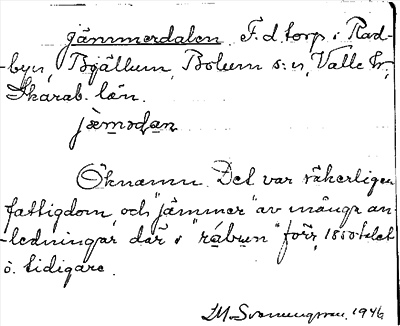 Jämmerdalen. F.d torp i Rad-
-byn, Bjällum, Bolum s:n, Valle hd,
Skarab. län.
Öknamn. Det var säkerligen
fattigdom och "jämmer" av många an-
-ledningar där i "råbun" förr, 1850-talet
o. tidigare.
1946